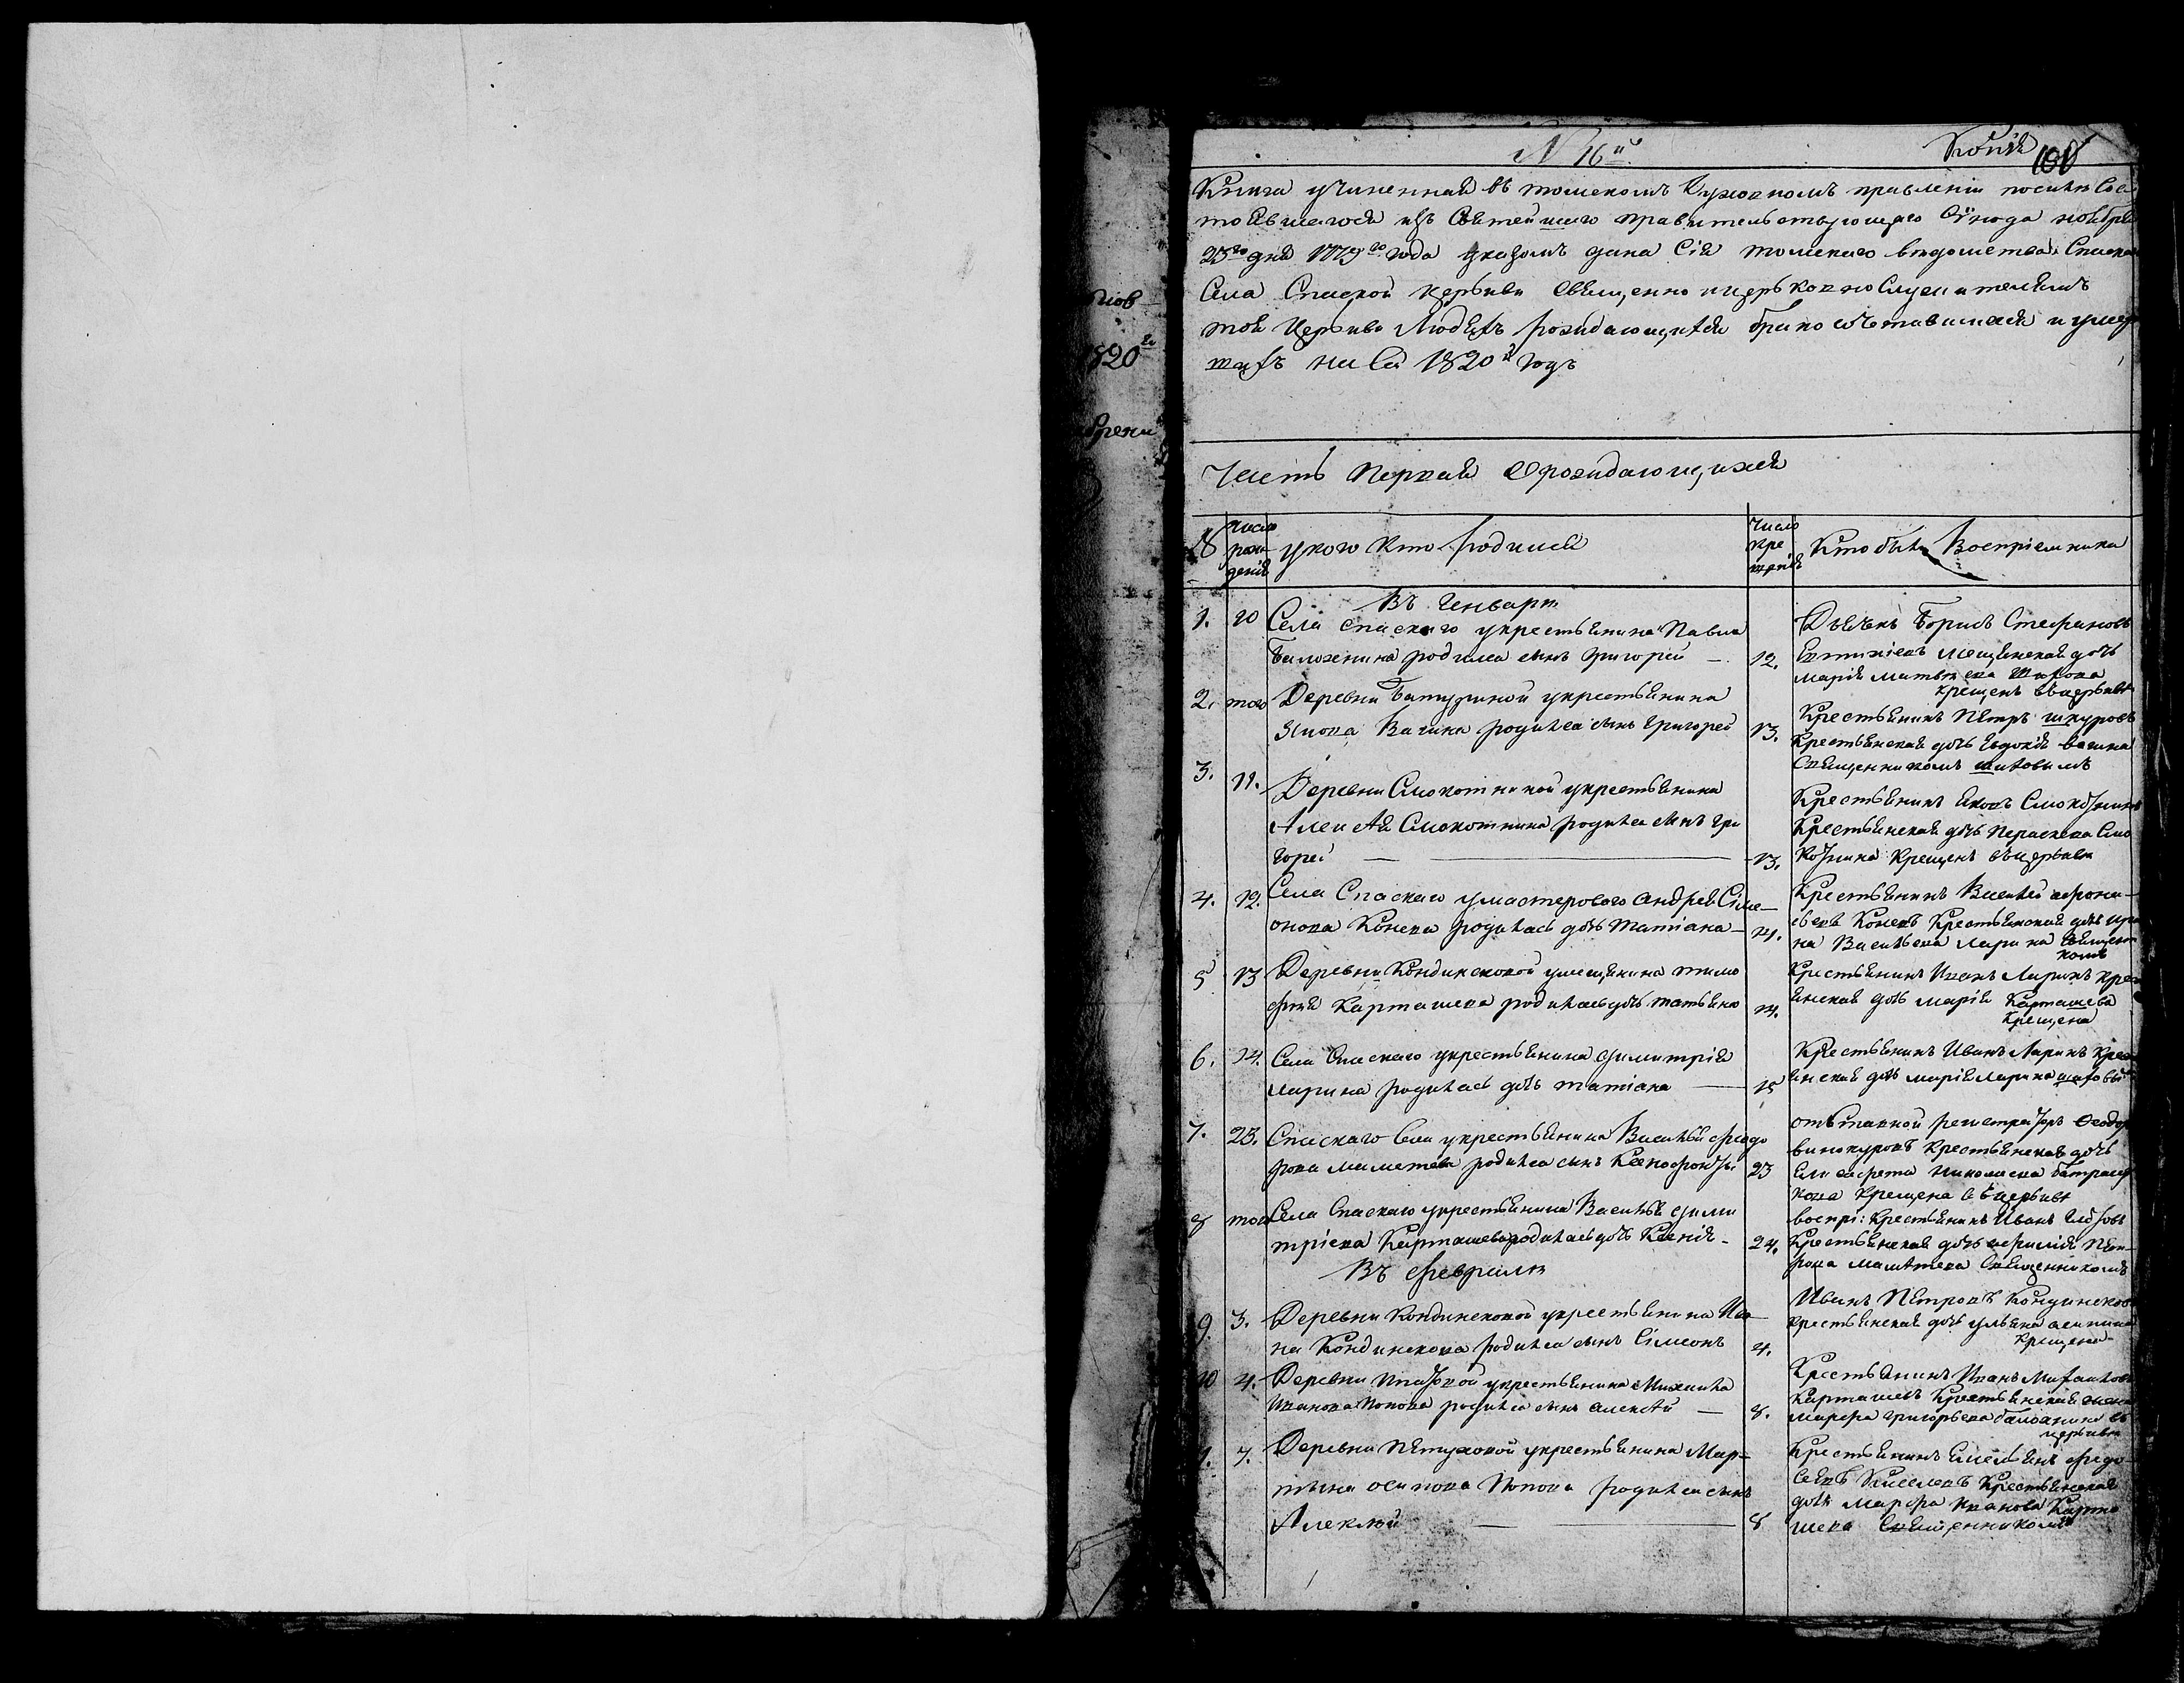 № 16й
Копія
Книга учиненная въ томскомъ духовномъ правленіи посилѣ Сос
тоявшагося изъ Святейшаго правительствующаго Сѵнода ноября
23го дня 1779го года указомъ дана Сія томскаго вѣдомства Спаска
Села Спаской церкви Священно ицерковнослужителямъ
той Церкви Людяхъ рождающихся бракосочетавшихся и умер
шихъ на Сей 1820й годъ
нов
1820го
Часть первая орождающихся
№
число рож-дения
укого кто родился
число кре щения
Кто были Восприемника
Въ Генварѣ
1. 10 Села спаскаго укрестьянина Павла
Баложенина родился сынъ Григорей — 12.
Дьячекъ Борисъ Стефановъ
мещанская дочь
марія
крещенъ въцеркви
2. того Деревни Батуриной укрестьянина
Якова Вагина родился сынъ Григорей 13.
Крестьянинъ Петръ шкуровъ
Крестьянская дочь Евдокія вагина
Священникомъ шиховымъ
3. 11. Деревни Смокотниной укрестьянина
Алексѣя Смокотнина родился сынъ Гри
горей — 13.
Крестьянинъ Яковъ Смокотнинъ
Крестьянская дочь Параскева Смо
котнина Крещенъ въцеркви
4. 12. Села Спаскаго умастероваго Андрея Симе-
онова Конева родилась дочь Татіана — 14.
Крестьянинъ Василей Афона-
сьевъ Коневъ Крестьянская дочь Ири
на Васильева Ларина Священ
комъ
5 13 Деревни Кондинсковой умещанина тимо
фея Карташева родилась дочь татьяна 14.
Крестьянинъ Иванъ Ларинъ Крес
янская дочь марія Карташева
Крещена
6. 14. Села Спаскаго укрестьянина димитрія
Ларина родилась дочь татіана — 15
Крестьянинъ Иванъ Ларинъ Крест
янская дочь марія Ларина шиховы
7. 23. Спаскаго Села укрестьянина Василья федо
рова маметева родился сынъ Ксенофонтъ 23
отставной регистраторъ Феодор
винокуровъ Крестьянская дочь
Елисавета Николаева
кова Крещена въцеркви
8 того Села Спаскаго укрестьянина Василья дими
тріева Карташева родилась дочь Ксенія - 24.
воспрі: Крестьянинъ Иванъ
Крестьянская дочь ефимія Пет-
рова маметева Священникомъ
Въ Февралѣ
9. 3. Деревни Кондинсковой укрестьянина Ива-
на Кондинскова родился сынъ Симеонъ 4.
Иванъ Петровъ Кондинсков
крестьянская дочь ульяна
Крещена
10 4. Деревни укрестьянина Михаила
Иванова Попова родился сынъ алексѣй — 8.
Крестьянинъ Иванъ Михаиловъ
Карташевъ Крестьянская жена
марфа григорьева баложнина въ
церкви
7. Деревни Петуховой укрестьянина Мар-
тына осипова Попова родился сынъ
Алексѣй — 8
Крестьянинъ Емельянъ федо-
сеевъ Киселевъ Крестьянская
дочь марфа Иванова Карта
шева Священникомъ